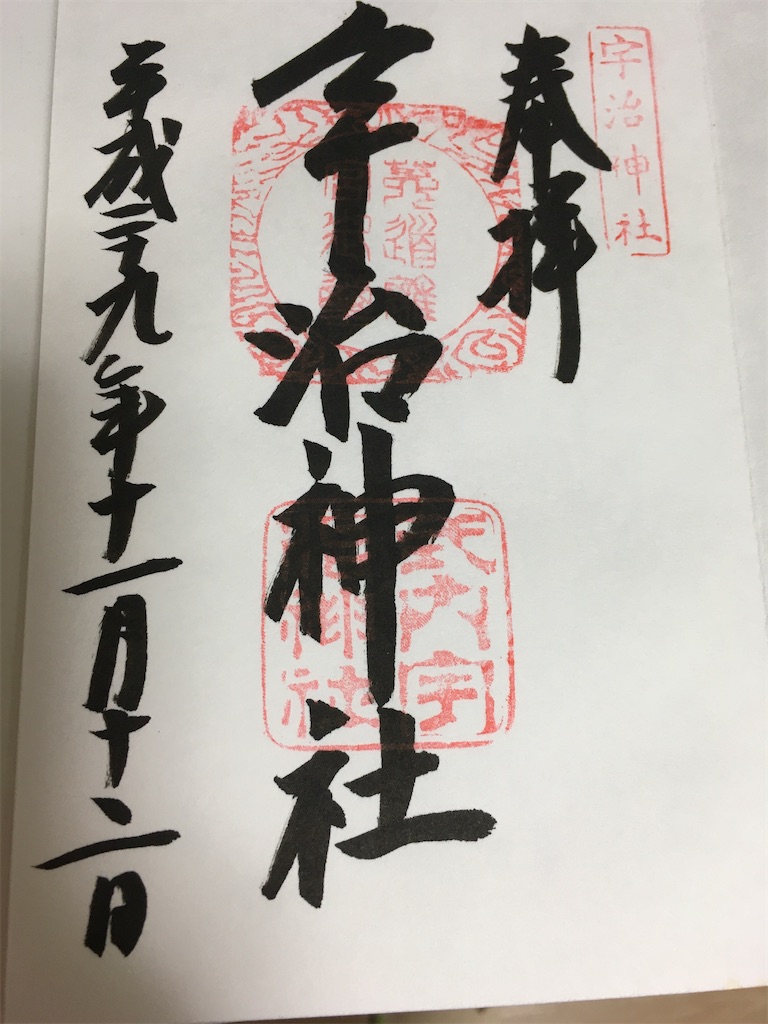 宇治神社
奉拝
宇治神社
平成二十九年十一月十二日